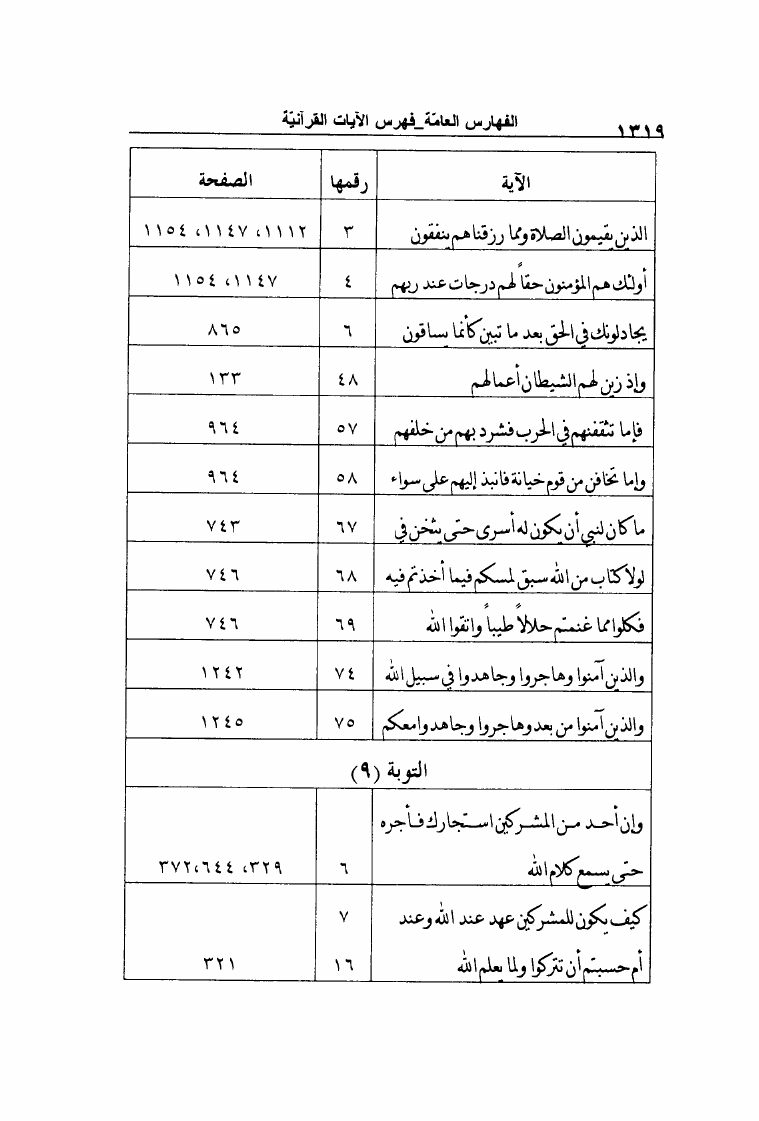 الفهارس العامّة_فهرس الآيات القرآنيّة ١٣١٩
الآية رقمها الصفحة
الذين يقيمون الصلاة ومما رزقناهم ينفقون ٣ ١١١٢، ١١٤٧، ١١٥٤
أولئك هم المؤمنون حقاً لهم درجات عند ربهم ٤ ١١٤٧، ١١٥٤
يجادلونك في الحق بعد ما تبين كأنما يساقون ٦ ٨٦٥
وإذ زين لهم الشيطان أعمالهم ٤٨ ١٣٣
فإما تثقفنهم في الحرب فشرد بهم من خلفهم ٥٧ ٩٦٤
وإما تخافن من قوم خيانة فانبذ إليهم على سواء ٥٨ ٩٦٤
ما كان لنبي أن يكون له أسرى حتى يثخن في ٦٧ ٧٤٣
لولا كتاب من الله سبق لمسكم فيما أخذتم فيه ٦٨ ٧٤٦
فكلوا مما غنمتم حلالاً طيباً واتقوا الله ٦٩ ٧٤٦
والذين آمنوا وهاجروا وجاهدوا في سبيل الله ٧٤ ١٢٤٢
والذين آمنوا من بعد وهاجروا وجاهدوا معكم ٧٥ ١٢٤٥
التوبة (٩)
وإن أحد من المشركين استجارك فأجره
حتى يسمع كلام الله ٦ ٣٢٩، ٣٧٢،٦٤٤
كيف يكون للمشركين عهد عند الله وعند ٧
أم حسبتم أن تتركوا ولما يعلم الله ١٦ ٣٢١